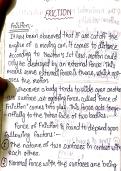 FRICTION
Friction:-
It has been observed that if we cut off the
engine of a moving car, it comes to distance
According to Newton's 1st Law motion could
only be destroyed by an external force. This
means some external force is there, which opposes
the motion.
Whenever a body tends to slide over on the
surface, an opposing force, called Force of
Friction comes into play. This force acts tangentially
to the plane of two bodies.
Force of Friction is found to depend upon
following factors:-
① The nature of two surfaces in contact with
each other.
② Normal force with the surfaces are being